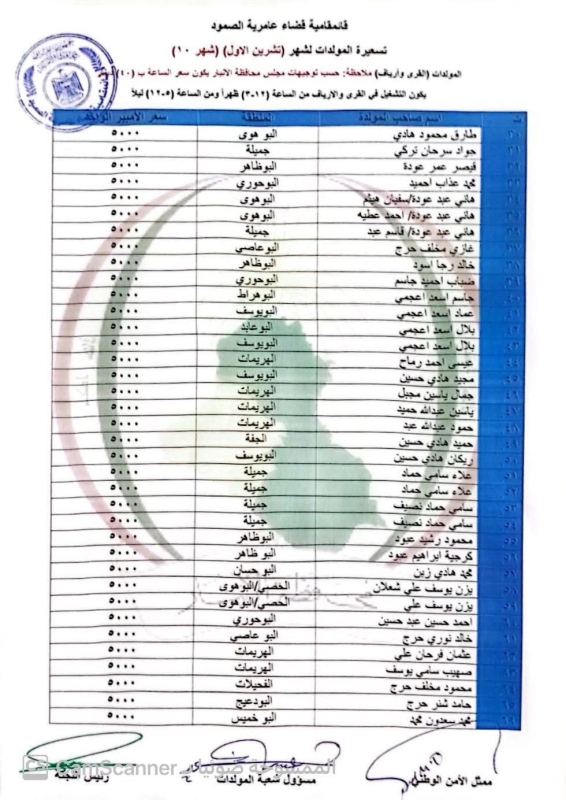 قائمقامية قضاء عامرية الصمود
تسعيرة المولدات لشهر (تشرين الاول) (شهر ١٠)
المولدات (القرى وأرياف) ملاحظة: حسب توجيهات مجلس محافظة الانبار يكون سعر الساعة ب (١٠)
يكون التشغيل في القرى والارياف من الساعة (١٢-٣) ظهراً ومن الساعة (٥-١٢) ليلاً
ت اسم صاحب المولدة المنطقة سعر الأمبير الواحد
٣٠ طارق محمود هادي البو هوى ٥٠٠٠
٣١ جواد سرحان تركي جميلة ٥٠٠٠
٣٢ قيصر عمر عودة البوظاهر ٥٠٠٠
٣٣ محمد عذاب احميد البوحوري ٥٠٠٠
٣٤ هاني عبد عودة/سفيان هيثم البوهوى ٥٠٠٠
٣٥ هاني عبد عودة/ احمد عطيه البوهوى ٥٠٠٠
٣٦ هاني عبد عودة/ قاسم عبد جميلة ٥٠٠٠
٣٧ غازي مخلف حرج البوعاصي ٥٠٠٠
٣٨ خالد رجا اسود البوظاهر ٥٠٠٠
٣٩ ضباب احميد جاسم البوحوري ٥٠٠٠
٤٠ جاسم اسعد اعجمي البوهراط ٥٠٠٠
٤١ عماد اسعد اعجمي البويوسف ٥٠٠٠
٤٢ بلال اسعد اعجمي البوعابد ٥٠٠٠
٤٣ بلال اسعد اعجمي البويوسف ٥٠٠٠
٤٤ عيسى احمد رماح الهريمات ٥٠٠٠
٤٥ مجيد هادي حسين البويوسف ٥٠٠٠
٤٦ جمال ياسين مجبل الهريمات ٥٠٠٠
٤٧ ياسين عبدالله حميد الهريمات ٥٠٠٠
٤٨ حمود عبدالله عبد الهريمات ٥٠٠٠
٤٩ حميد هادي حسين الجفة ٥٠٠٠
٥٠ ريكان هادي حسين البويوسف ٥٠٠٠
٥١ علاء سامي حماد جميلة ٥٠٠٠
٥٢ علاء سامي حماد جميلة ٥٠٠٠
٥٣ سامي حماد نصيف جميلة ٥٠٠٠
٥٤ سامي حماد نصيف جميلة ٥٠٠٠
٥٥ محمود رشيد عبود البوظاهر ٥٠٠٠
٥٦ كرجية ابراهيم عبود البو ظاهر ٥٠٠٠
٥٧ محمد هادي زبن البو حسان ٥٠٠٠
٥٨ يزن يوسف علي شعلان الحصي/البوهوى ٥٠٠٠
٥٩ يزن يوسف علي الحصي/البوهوى ٥٠٠٠
٦٠ احمد حسين عبد حسين البوحوري ٥٠٠٠
٦١ خالد نوري حرج البو عاصي ٥٠٠٠
٦٢ عثمان فرحان علي الهريمات ٥٠٠٠
٦٣ صهيب سامي يوسف الهريمات ٥٠٠٠
٦٤ محمود مخلف حرج الفحيلات ٥٠٠٠
٦٥ حامد شنر حرج البودعيج ٥٠٠٠
٦٦ محمد سعدون محمد البو خميس ٥٠٠٠
ممثل الأمن الوطني مسؤول شعبة المولدات رئيس اللجنة
الممسوحة ضوئيا بـ CamScanner